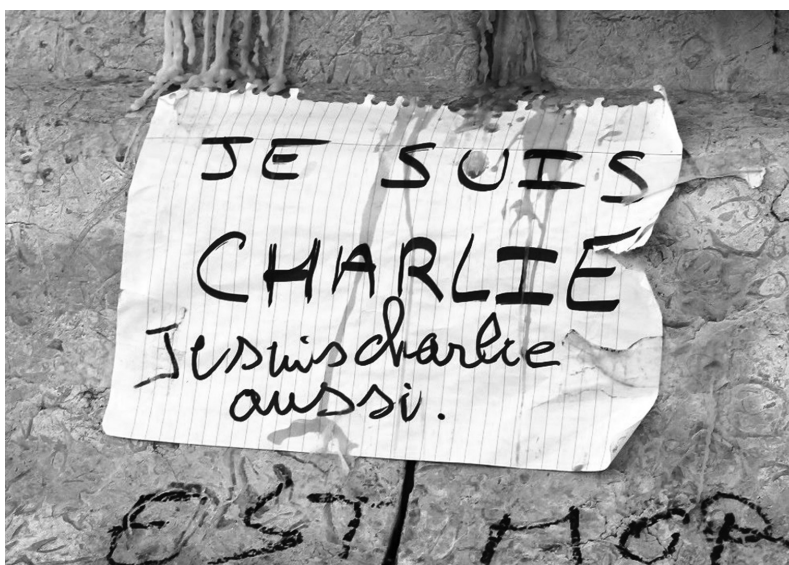 JE SUIS
CHARLIE
Je suis charlie
aussi.
EST